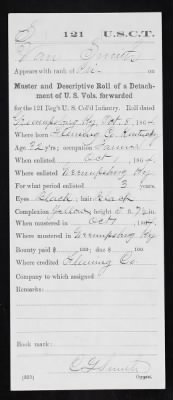 S 121 U.S.C.T.
Van Smith
Appears with rank of Pvt. on
Muster and Descriptive Roll of a Detach-
ment of U. S. Vols. forwarded
for the 121 Reg't U.S. Col'd Infantry. Roll dated
Ky, Oct. 8, 1864
Where born Fleming Co. Kentucky
Age 32 y'rs; occupation Farmer
When enlisted Oct 1, 1864
Where enlisted Ky
For what period enlisted 3 years.
Eyes Black; hair Black
Complexion Yellow; height 5 ft. 7½ in.
When mustered in Oct 1, 1864
Where mustered in Ky
Bounty paid $ 100; due $ 100
Where credited Fleming Co.
Company to which assigned
Remarks:
C. G. Smith
Copyist.